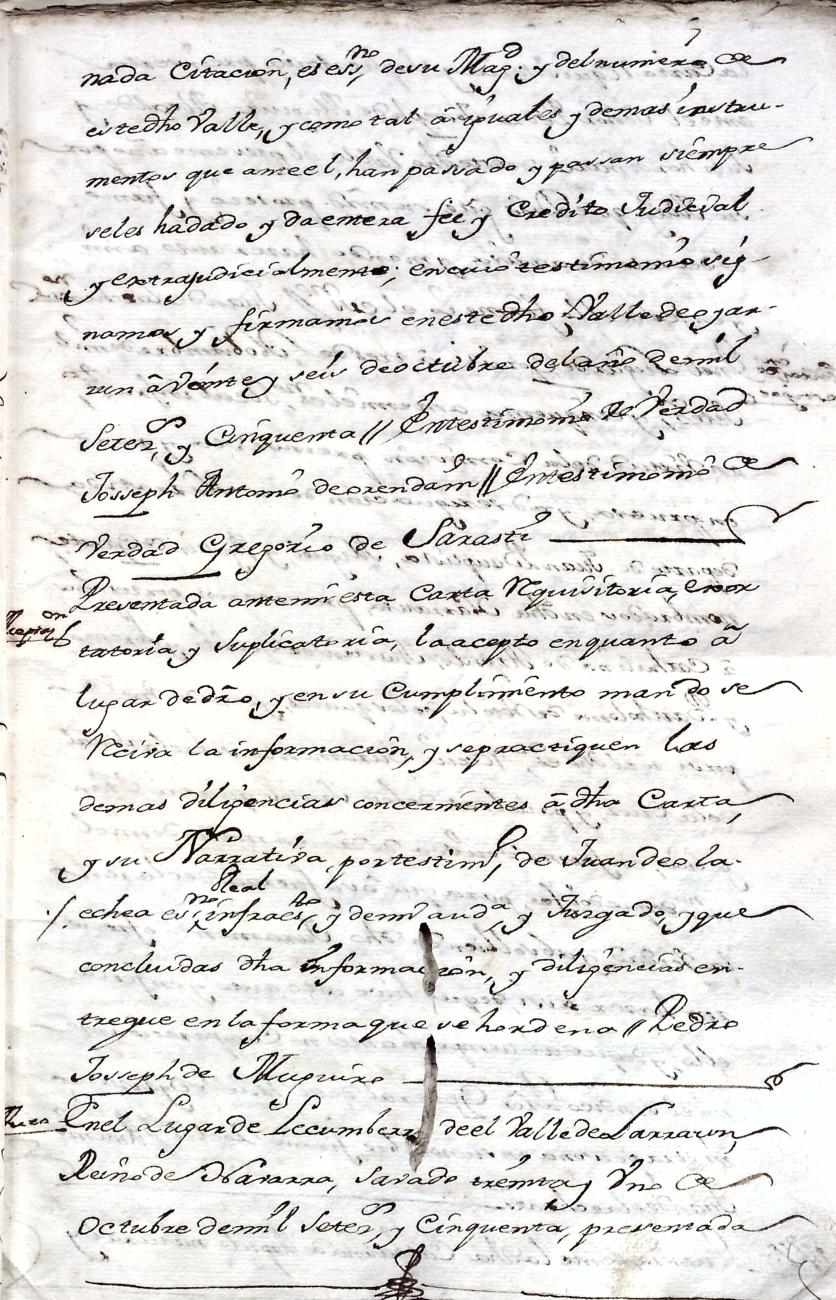 nada Citacion, es essno, de su Magd. y del numero de
este dho Valle, y como tal â iguales y demas instru-
mentos que ante el, han passado y passan siempre
seles hâ dado y da entera fee y Credito Judicial
y extrajudicialmente; en cuio testimonio sig-
namos y firmamos en este dho Valle de oyar-
zun â veinte y seis de octubre del año de mil
setezos, y Cinquenta // En testimonio de Verdad
Josseph Antonio de orendain // En testimonio de
Verdad Gregorio de Sarasti
Presentada ante mi esta Carta Requisitoria, exor
tatoria y Suplicatoria, la acepto en quanto â
lugar de dro, y en su Cumplimiento mando se
Reciva la informacion, y se practiquen las
demas diligencias concernientes â dha Carta,
y su Narrativa, por testimo, de Juan de ola-
Real
/. echea esno, infraesto, y de mi auda y Juzgado, y que
concluidas dha informacion, y diligencias en-
tregue en la forma que se hordena // Pedro
Josseph de Muguiro
En el Lugar de Lecumberri de el Valle de Larraun,
Reino de Navarra, Savado treinta y Vno de
Octubre de mil Setezos, y Cinquenta, presentada